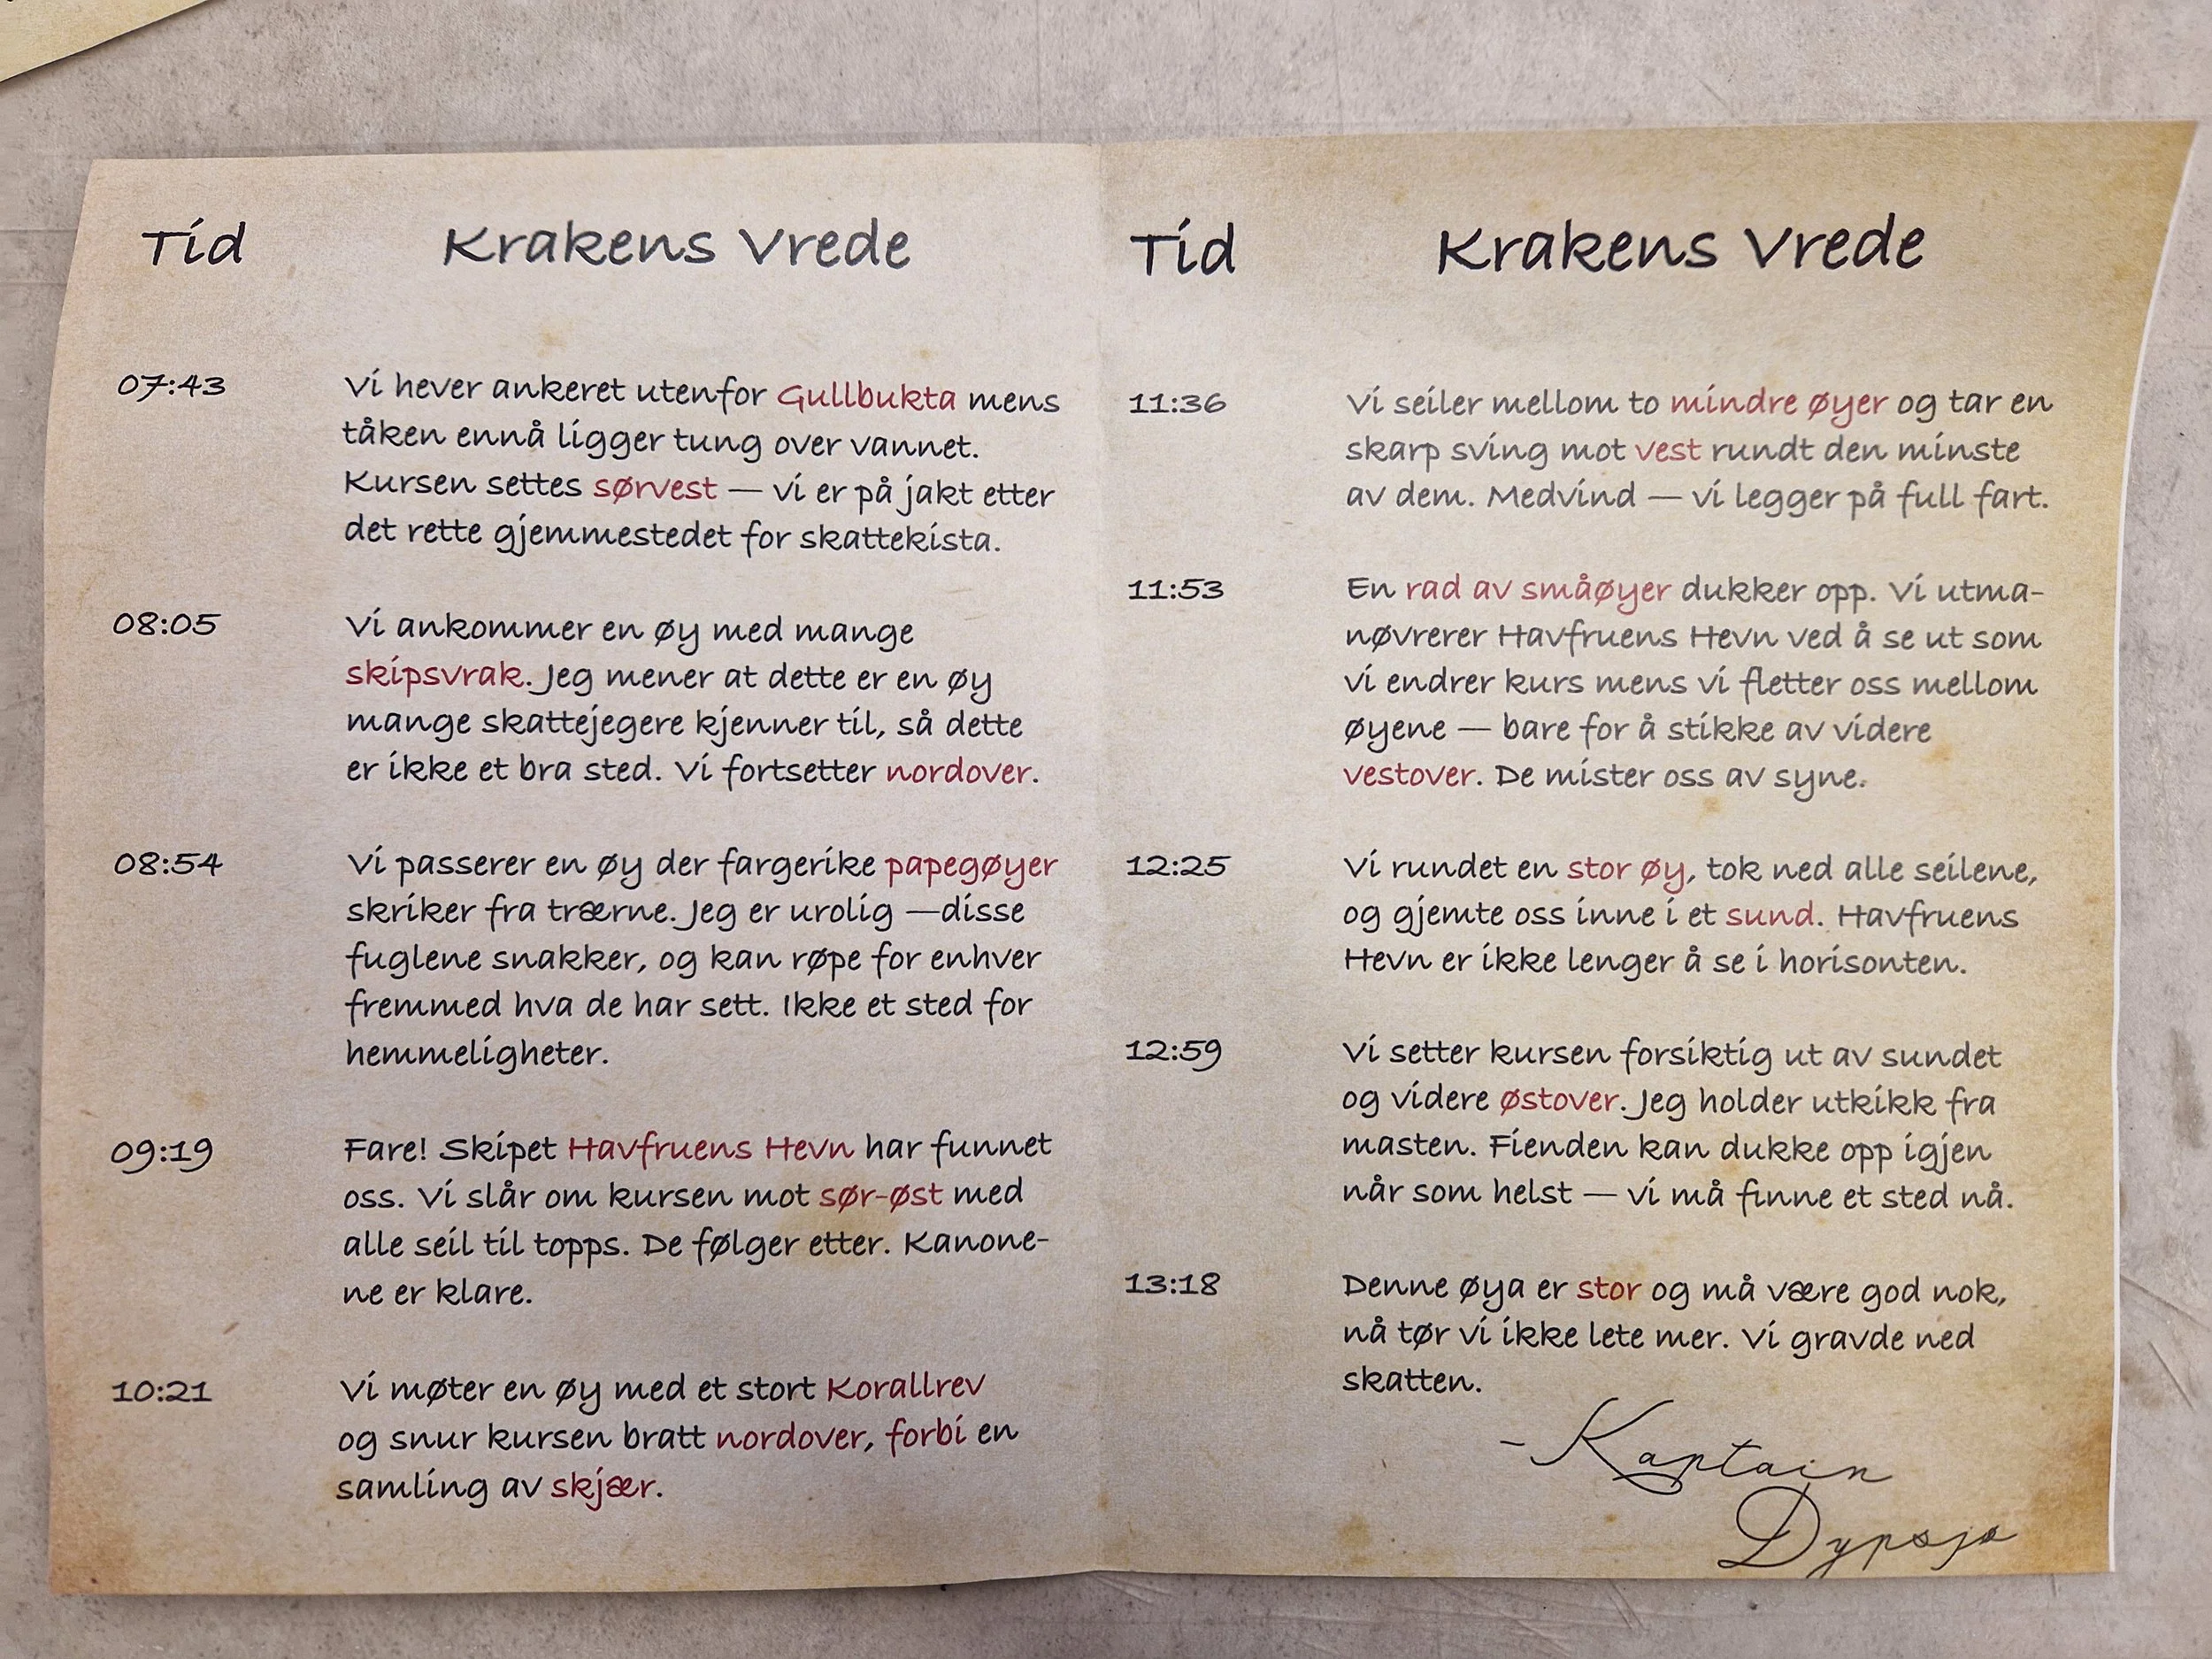 Tid
Krakens Vrede
07:43
Vi hever ankeret utenfor Gullbukta mens
tåken ennå ligger tung over vannet.
Kursen settes sørvest — vi er på jakt etter
det rette gjemmestedet for skattekista.
08:05
Vi ankommer en øy med mange
skipsvrak. Jeg mener at dette er en øy
mange skattejegere kjenner til, så dette
er ikke et bra sted. Vi fortsetter nordover.
08:54
Vi passerer en øy der fargerike papegøyer
skriker fra trærne. Jeg er urolig —disse
fuglene snakker, og kan røpe for enhver
fremmed hva de har sett. Ikke et sted for
hemmeligheter.
09:19
Fare! Skipet Havfruens Hevn har funnet
oss. Vi slår om kursen mot sør-øst med
alle seil til topps. De følger etter. Kanone-
ne er klare.
10:21
Vi møter en øy med et stort Korallrev
og snur kursen bratt nordover, forbi en
samling av skjær.
Tid
Krakens Vrede
11:36
Vi seiler mellom to mindre øyer og tar en
skarp sving mot vest rundt den minste
av dem. Medvind — vi legger på full fart.
11:53
En rad av småøyer dukker opp. Vi utma-
nøvrerer Havfruens Hevn ved å se ut som
vi endrer kurs mens vi fletter oss mellom
øyene — bare for å stikke av videre
vestover. De mister oss av syne.
12:25
Vi rundet en stor øy, tok ned alle seilene,
og gjemte oss inne i et sund. Havfruens
Hevn er ikke lenger å se i horisonten.
12:59
Vi setter kursen forsiktig ut av sundet
og videre østover. Jeg holder utkikk fra
masten. Fienden kan dukke opp igjen
når som helst — vi må finne et sted nå.
13:18
Denne øya er stor og må være god nok,
nå tør vi ikke lete mer. Vi gravde ned
skatten.
- Kaptain
Dypsjø